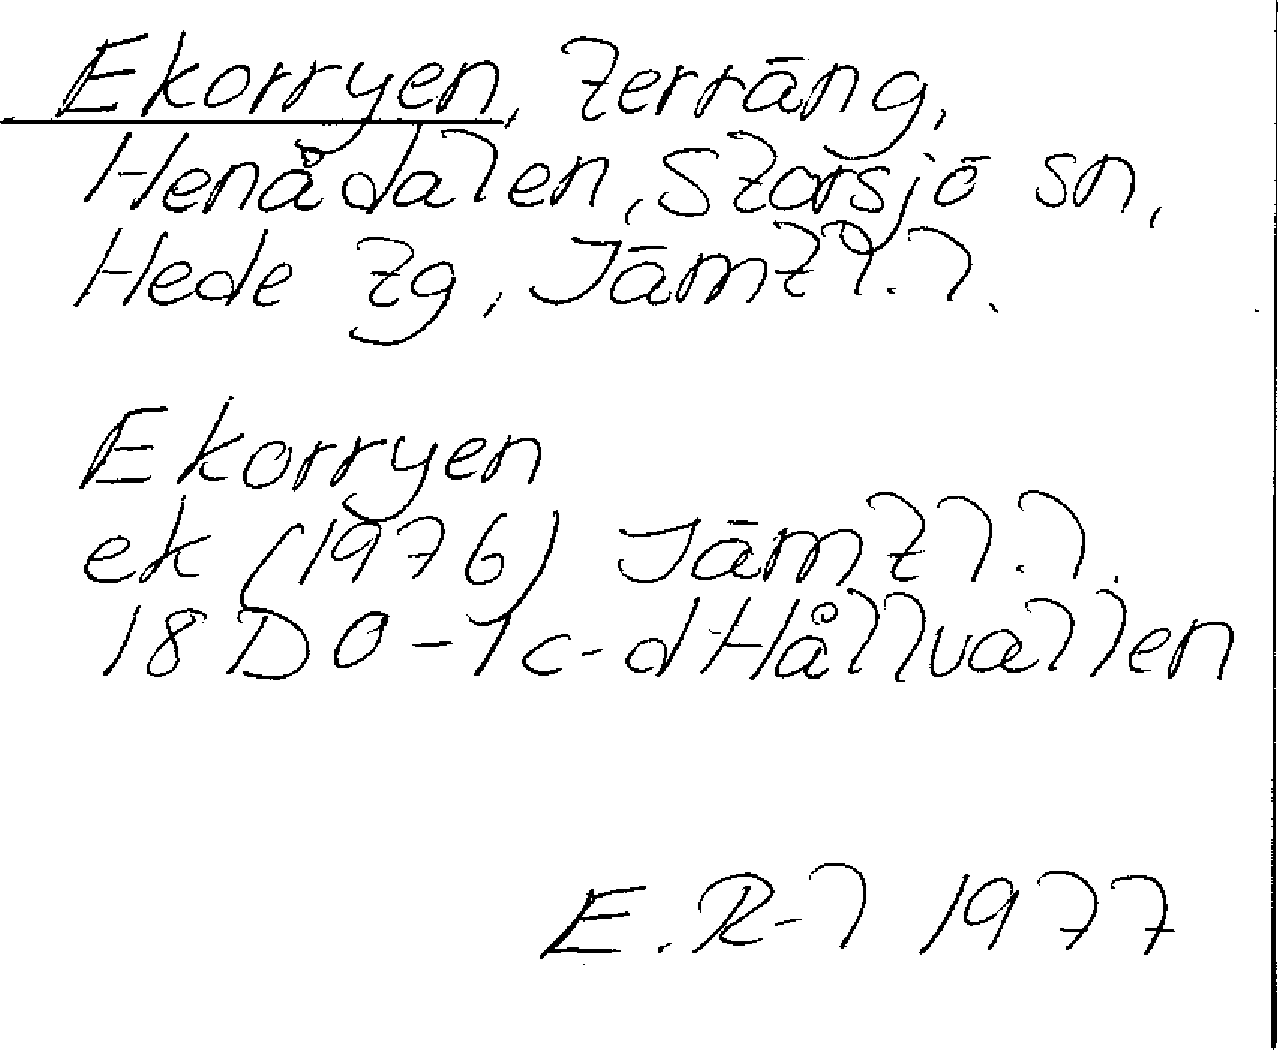 Ekorryen, terräng,
Henådalen, Storsjö sn,
Hede tg, Jämtl.l.
Ekorryen
ek (1976) Jämtl.l.
18D 0-1c-d Hållvallen
E.R-l 1977